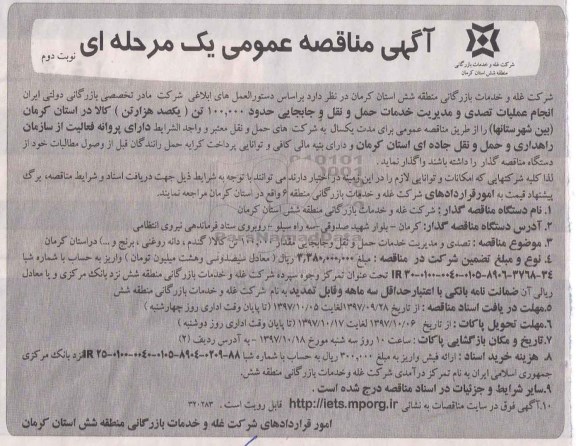 آگهی مناقصه عمومی یک مرحله ای
نوبت دوم
شرکت غله و خدمات بازرگانی
منطقه شش استان کرمان
شرکت غله و خدمات بازرگانی منطقه شش استان کرمان در نظر دارد براساس دستورالعمل های ابلاغی شرکت مادر تخصصی بازرگانی دولتی ایران
انجام عملیات تصدی و مدیریت خدمات حمل و نقل و جابجایی حدود ۱۰۰,۰۰۰ تن ( یکصد هزارتن ) کالا در استان کرمان
(بین شهرستانها) را از طریق مناقصه عمومی برای مدت یکسال به شرکت های حمل و نقل معتبر و واجد الشرایط دارای پروانه فعالیت از سازمان
راهداری و حمل و نقل جاده ای استان کرمان و دارای بنیه مالی کافی و توانایی پرداخت کرایه حمل رانندگان قبل از وصول مطالبات خود از
دستگاه مناقصه گذار را داشته باشند واگذار نماید.
لذا کلیه شرکتهایی که امکانات و توانایی لازم را در این زمینه در اختیار دارند می توانند با توجه به شرایط ذیل جهت دریافت اسناد و شرایط مناقصه، برگ
پیشنهاد قیمت به امور قراردادهای شرکت غله و خدمات بازرگانی منطقه ۶ واقع در استان کرمان مراجعه نمایند.
۱. نام دستگاه مناقصه گذار : شرکت غله و خدمات بازرگانی منطقه شش استان کرمان
۲. آدرس دستگاه مناقصه گذار: کرمان - بلوار شهید صدوقی -سه راه سیلو -روبروی ستاد فرماندهی نیروی انتظامی
۳. موضوع مناقصه : تصدی و مدیریت خدمات حمل و نقل وجابجایی مقدار ۱۰۰,۰۰۰ تن کالا( گندم ، دانه روغنی ، برنج و ...) دراستان کرمان
۴. نوع و مبلغ تضمین شرکت در مناقصه : مبلغ ۳,۳۸۰,۰۰۰,۰۰۰ ریال ( معادل سیصدوسی وهشت میلیون تومان ) واریز به حساب با شماره شبا
IR ۳۰-۰۱۰۰-۰۰۴۰-۰۱۰۵-۸۹۰۶-۳۷۶۸-۳۴ تحت عنوان تمرکز وجوه سپرده شرکت غله و خدمات بازرگانی منطقه شش نزد بانک مرکزی و یا معادل
ریالی آن ضمانت نامه بانکی با اعتبار حداقل سه ماهه وقابل تمدید به نام شرکت غله و خدمات بازرگانی منطقه شش
۵.مهلت در یافت اسناد مناقصه : از تاریخ ۱۳۹۷/۰۹/۲۸ لغایت ۱۳۹۷/۱۰/۰۵ (تا پایان وقت اداری روز چهارشنبه )
۶.مهلت تحویل پاکات : از تاریخ ۱۳۹۷/۱۰/۰۶ لغایت ۱۳۹۷/۱۰/۱۷ (تا پایان وقت اداری روز دوشنبه )
۷.تاریخ و مکان بازگشایی پاکات : ساعت ۱۰ روز سه شنبه مورخ ۱۳۹۷/۱۰/۱۸ - به آدرس ردیف (۲)
۸. هزینه خرید اسناد : ارائه فیش واریز به مبلغ ۳۰۰,۰۰۰ ریال به حساب با شماره شبا IR ۲۵-۰۱۰۰-۰۰۴۰-۰۱۰۵-۸۹۰۴-۰۲۰۹-۸۸ نزد بانک مرکزی
جمهوری اسلامی ایران به نام تمرکز درآمدی شرکت غله وخدمات بازرگانی منطقه شش.
۹.سایر شرایط و جزئیات در اسناد مناقصه درج شده است .
۱۰.آگهی فوق در سایت مناقصات به نشانی http://iets.mporg.ir قابل رویت است . ۳۲۰۲۸۳
امور قراردادهای شرکت غله و خدمات بازرگانی منطقه شش استان کرمان